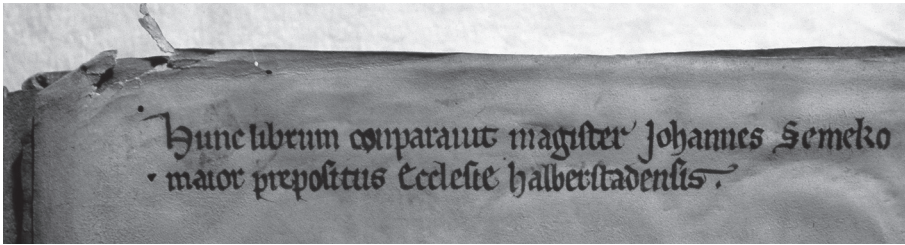 Hunc librum conparauit magister Johannes Semeko
maior prepositus Ecclesie halberstadensis.